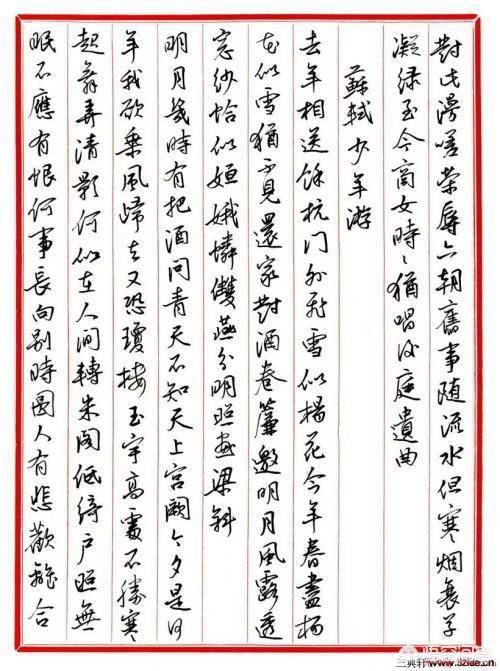 對此漫嗟榮辱六朝舊事隨流水但寒烟衰草
凝綠至今商女時々猶唱後庭遺曲
蘇軾少年游
去年相送餘杭门外飛雪似楊花今年春盡楊
花似雪猶不見還家對酒卷簾邀明月風露透
窓紗恰似姮娥憐雙燕分明照畫梁斜
明月幾時有把酒問青天不知天上宮闕今夕是何
年我欲乘風歸去又恐瓊楼玉宇高處不勝寒
起舞弄清影何似在人间轉朱阁低綺戶照無
眠不應有恨何事長向别時圓人有悲歡離合
三典轩www.52ide.cn